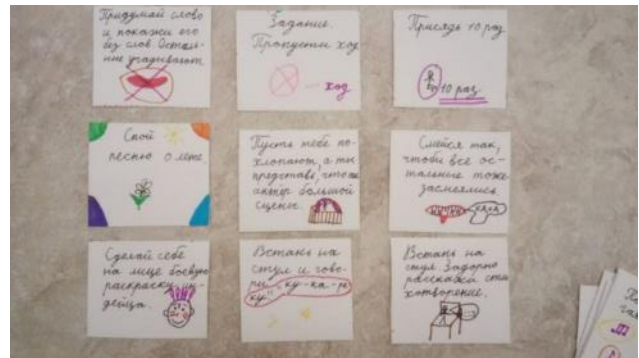 Придумай слово
и покажи его
без слов. Осталь-
ные угадывают
Задание.
Пропусти ход
ход
Присядь 10 раз
10 раз
Спой
песню о лете
Пусть тебе по-
хлопают, а ты
представь, что ты
актёр большой
сцены.
Смейся так,
чтобы все ос-
тальные тоже
засмеялись.
Сделай себе
на лице боевую
раскраску ин-
дейца.
Встань на
стул и гово-
ри "ку-ка-ре
ку"
Встань на
стул Задорно
расскажи сти
хотворение.